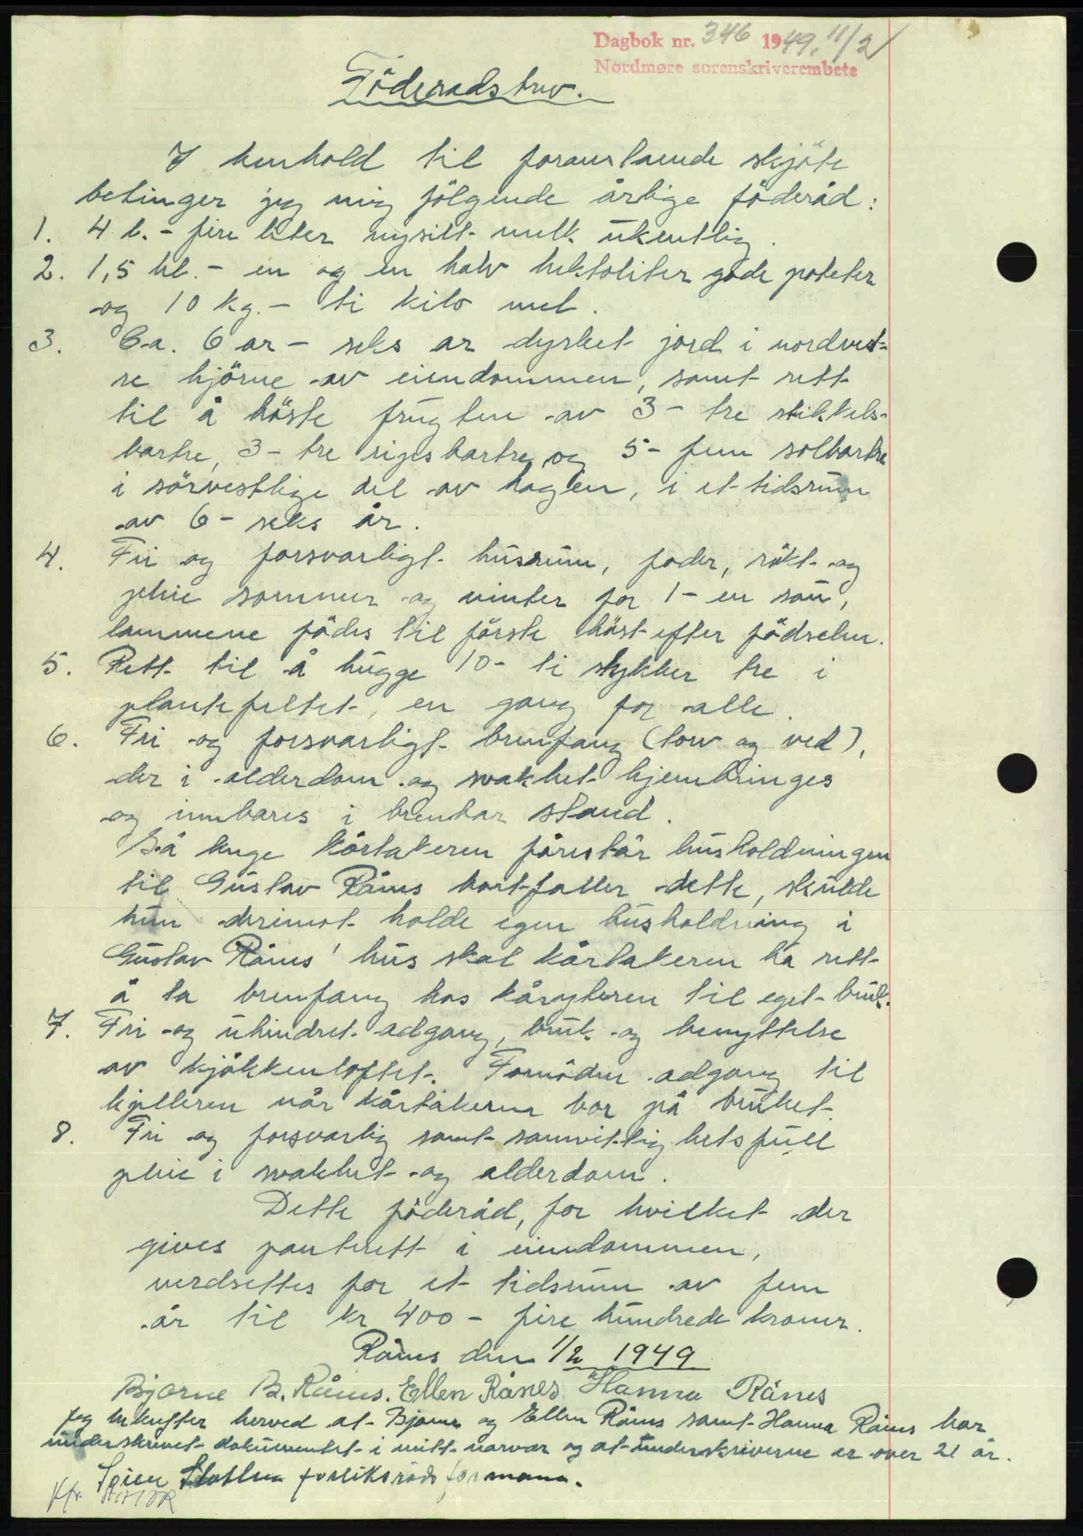 Dagbok nr. 346 1949, 11/2
Nordmøre sorenskriverembete
Föderådsbrev.
I henhold til foranstående skjöte
betinger jeg mig fölgende årlige föderåd:
1. 4 l. - fire liter nysilt melk ukentlig.
2. 1,5 hl. - en og en halv hektoliter gode poteter
og 10 kg. - ti kilo mel.
3. Ca. 6 ar - seks ar dyrket jord i nordvest-
re hjörne av eiendommen, samt rett
til å höste frugten av 3 - tre stikkels-
bærtre, 3 - tre ripsbærtre og 5 - fem solbærtre
i sörvestlige del av hagen, i et tidsrum
av 6 - seks år.
4. Fri og forsvarligt husrum, foder, rökt og
pleie sommer og vinter for 1 - en sau,
lammene födes til förste höst efter födselen.
5. Rett til å hugge 10 - ti stykker tre i
plantefeltet, en gang for alle.
6. Fri og forsvarligt brenfang (torv og ved),
der i alderdom og svakhet hjembringes
og innbæres i brenbar stand.
Så lenge kårtakeren forestår husholdningen
til Gustav Rånes bortfaller dette, skulde
hun derimot holde egen husholdning i
Gustav Rånes' hus skal kårtakeren ha rett
å ta brenfang hos kårgiveren til eget bruk.
7. Fri og uhindret adgang, bruk og benyttelse
av kjökkenloftet. Fornöden adgang til
kjelleren når kårtakeren bor på bruket.
8. Fri og forsvarlig samt samvittighetsfull
pleie i svakhet og alderdom.
Dette föderåd, for hvilket der
gives panterett i eiendommen,
verdsettes for et tidsrum av fem
år til kr 400 - fire hundrede kroner.
Rånes den 1/2 1949
Bjarne B. Rånes. Ellen Rånes Hanna Rånes
Jeg bekrefter herved at Bjarne og Ellen Rånes samt Hanna Rånes har
underskrevet dokumentet i mitt nærvær og at underskriverne er over 21 år.
forliksråds formann.